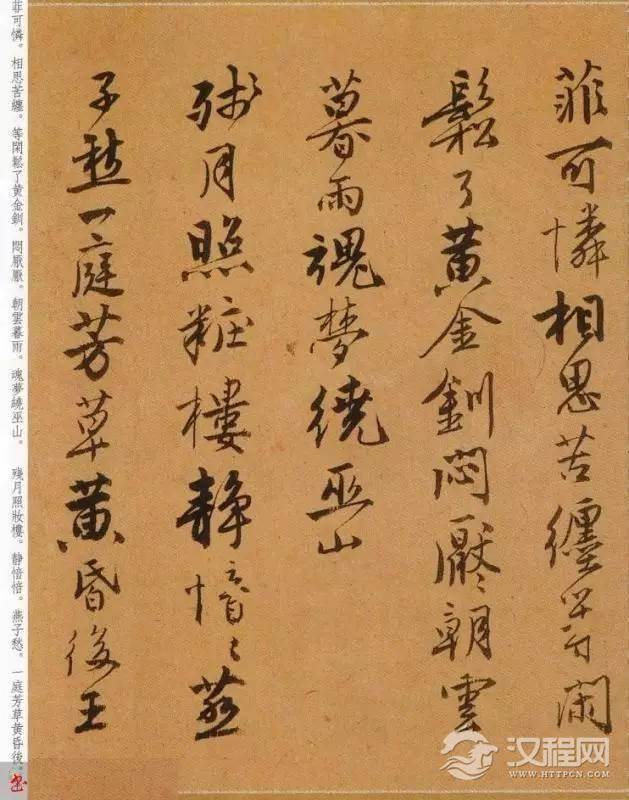 菲可憐相思苦纏等閑
鬆了黃金釧悶厭〻朝雲
暮雨魂梦繞巫山
殘月照粧樓靜愔〻燕
子愁一庭芳草黃昏後王
菲可憐。相思苦纏。等閑鬆了黃金釧。悶厭厭。朝雲暮雨。魂夢繞巫山。 殘月照妝樓。靜愔愔。燕子愁。一庭芳草黃昏後。
汉程网
WWW.HTTPCN.COM